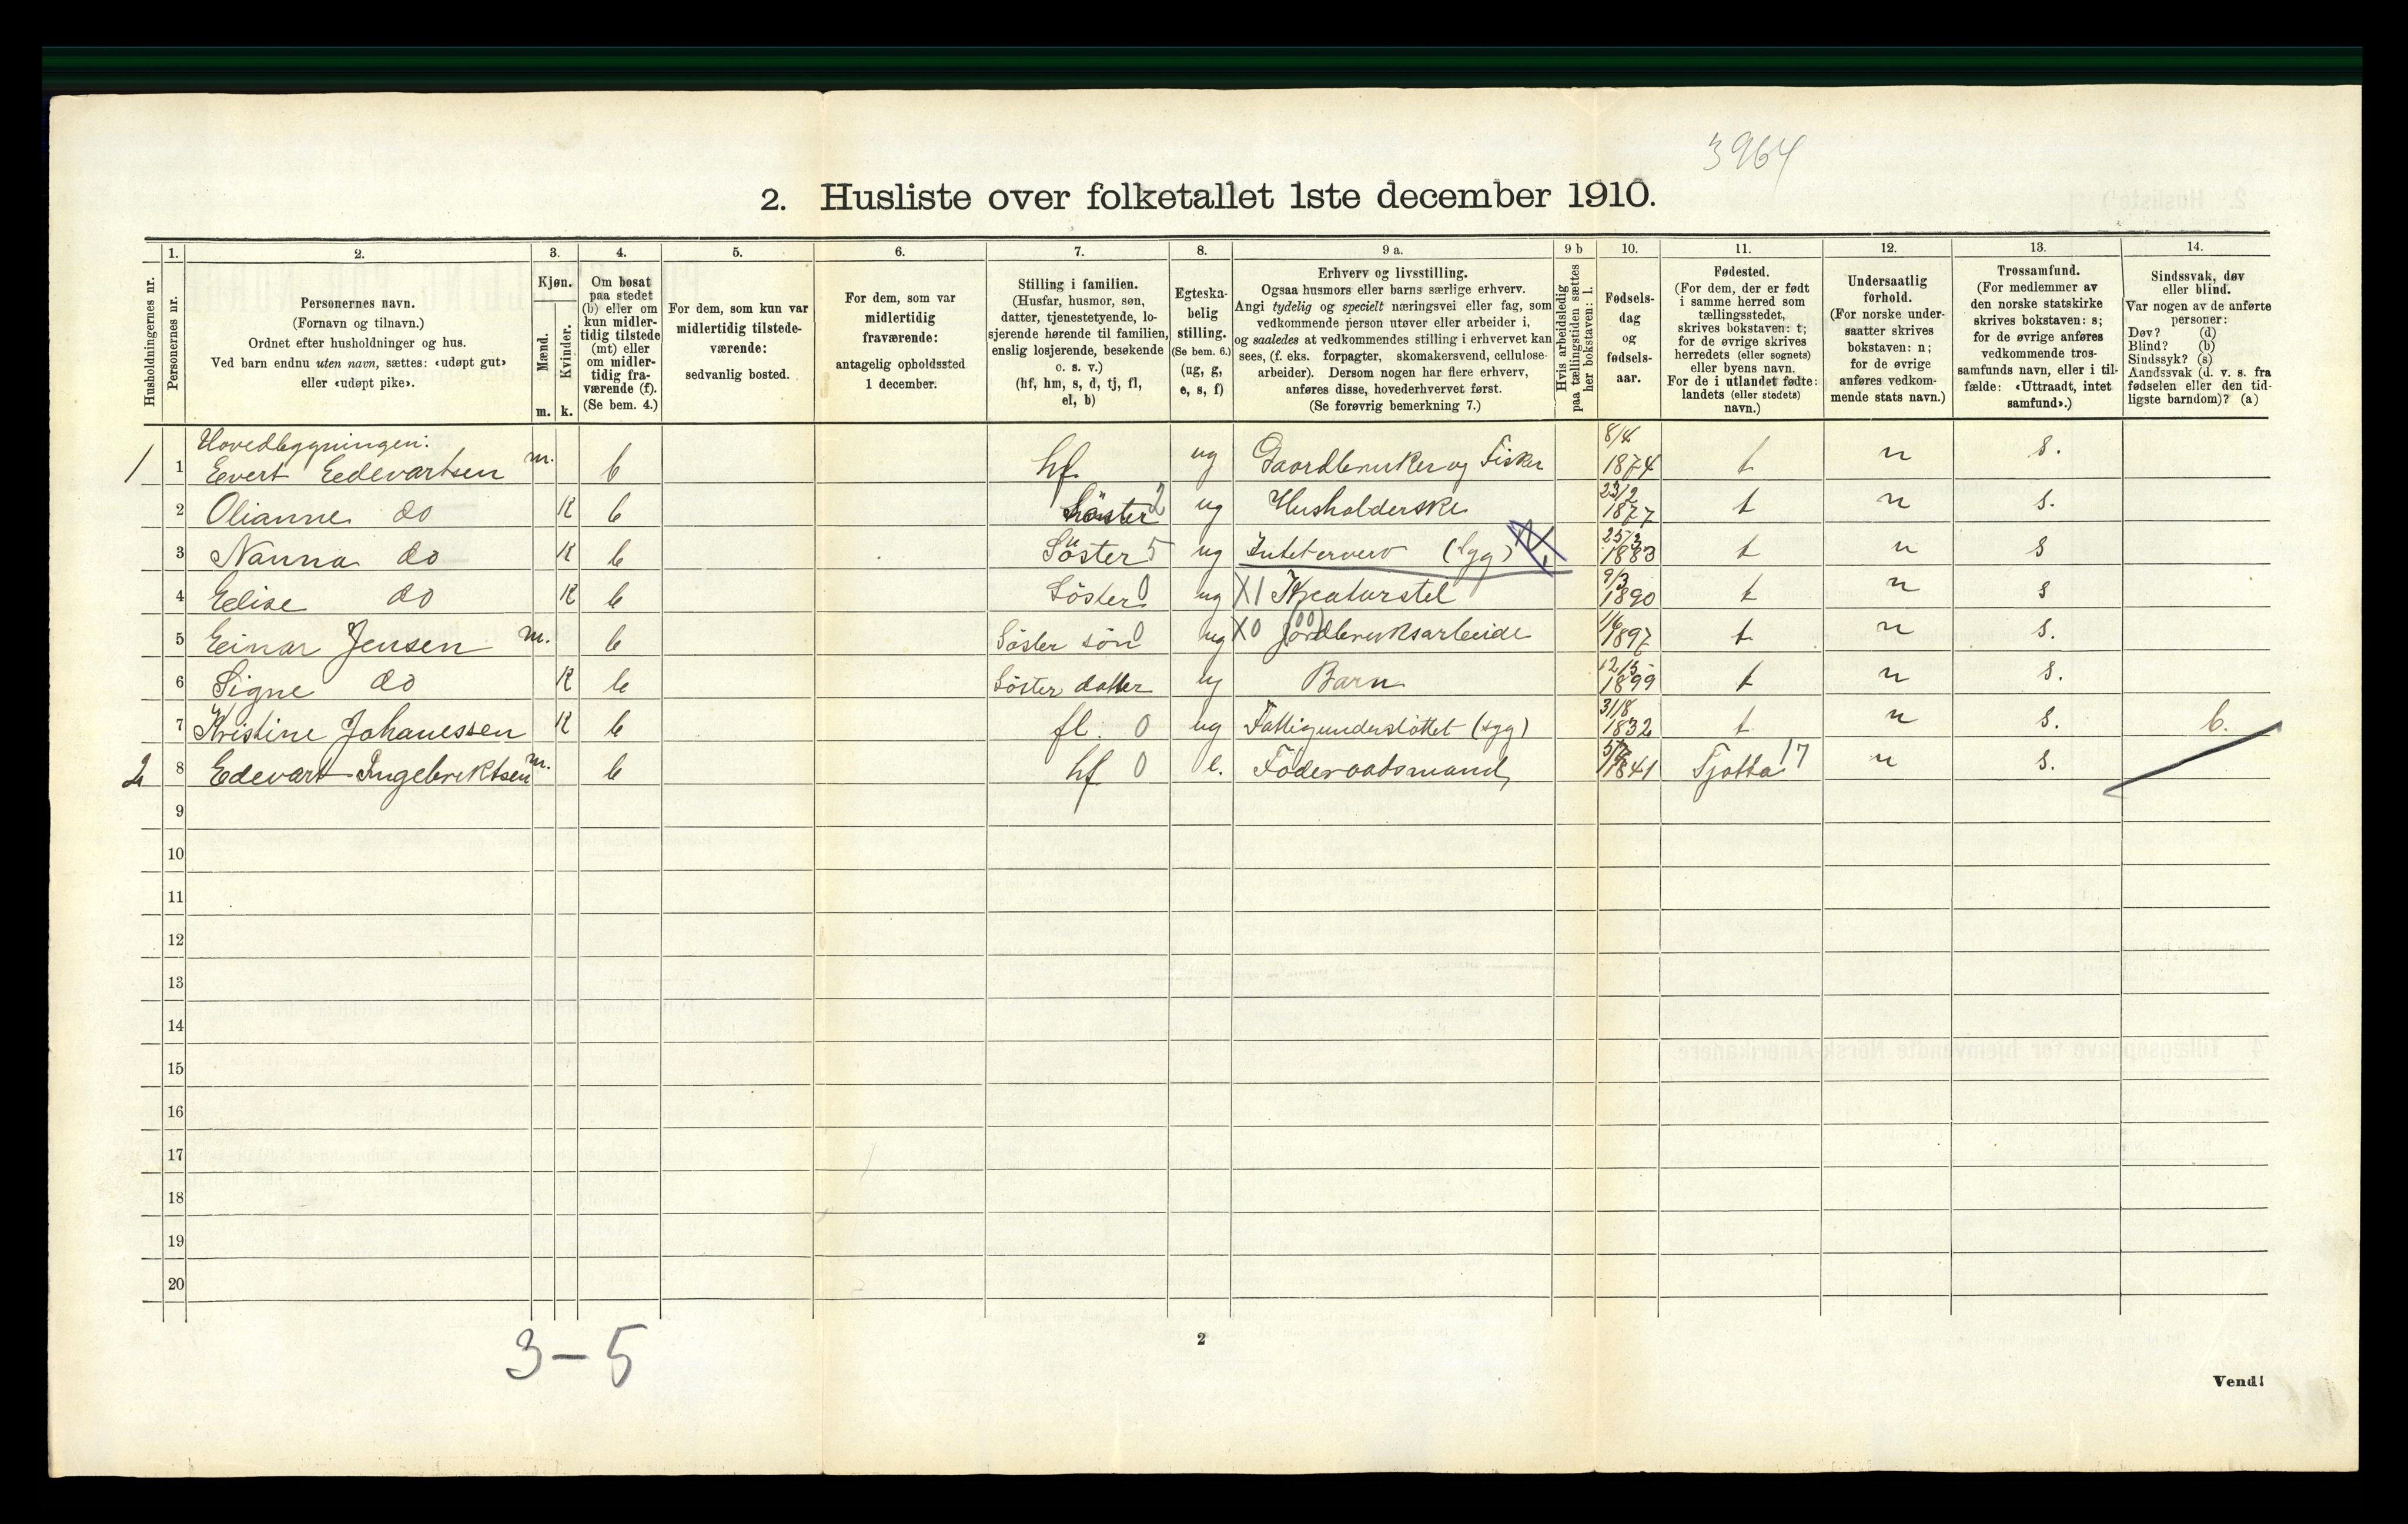 3964
2. Husliste over folketallet 1ste december 1910.
Husholdningernes nr.
1.
Personernes nr.
2.
Personernes navn.
(Fornavn og tilnavn.)
Ordnet efter husholdninger og hus.
Ved barn endnu uten navn, sættes: «udøpt gut»
eller «udøpt pike».
3.
Kjøn.
Mænd. Kvinder.
m. k.
4.
Om bosat
paa stedet
(b) eller om
kun midler-
tidig tilstede
(mt) eller
om midler-
tidig fra-
værende (f).
(Se bem. 4.)
5.
For dem, som kun var
midlertidig tilstede-
værende:
sedvanlig bosted.
6.
For dem, som var
midlertidig
fraværende:
antagelig opholdssted
1 december.
7.
Stilling i familien.
(Husfar, husmor, søn,
datter, tjenestetyende, lo-
sjerende hørende til familien,
enslig losjerende, besøkende
o. s. v.)
(hf, hm, s, d, tj, fl,
el, b)
8.
Egteska-
belig
stilling.
(Se bem. 6.)
(ug, g,
e, s, f)
9 a.
Erhverv og livsstilling.
Ogsaa husmors eller barns særlige erhverv.
Angi tydelig og specielt næringsvei eller fag, som
vedkommende person utøver eller arbeider i,
og saaledes at vedkommendes stilling i erhvervet kan
sees, (f. eks. forpagter, skomakersvend, cellulose-
arbeider). Dersom nogen har flere erhverv,
anføres disse, hovederhvervet først.
(Se forøvrig bemerkning 7.)
9 b
Hvis arbeidsledig
paa tællingstiden sættes
her bokstaven: l.
10.
Fødsels-
dag
og
fødsels-
aar.
11.
Fødested.
(For dem, der er født
i samme herred som
tællingsstedet,
skrives bokstaven: t;
for de øvrige skrives
herredets (eller sognets)
eller byens navn.
For de i utlandet fødte:
landets (eller stedets)
navn.)
12.
Undersaatlig
forhold.
(For norske under-
saatter skrives
bokstaven: n;
for de øvrige
anføres vedkom-
mende stats navn.)
13.
Trossamfund.
(For medlemmer av
den norske statskirke
skrives bokstaven: s;
for de øvrige anføres
vedkommende tros-
samfunds navn, eller i til-
fælde: «Uttraadt, intet
samfund».)
14.
Sindssvak, døv
eller blind.
Var nogen av de anførte
personer:
Døv? (d)
Blind? (b)
Sindssyk? (s)
Aandssvak (d. v. s. fra
fødselen eller den tid-
ligste barndom)? (a)
Hovedbygningen:
1 1 Evert Edevartsen m. b hf ug Gaardbruker og Fisker 8/4 1874 t n s.
2 Olianne do K b Söster 2 ug Husholderske 23/2 1877 t n s.
3 Nanna do K b Söster 5 ug Intet erverv (syg) 25/3 1883 t n s
4 Elise do K b Söster 0 ug X1 Kreaturstel 9/3 1890 t n s
5 Einar Jensen m. b Söster sön 0 ug X0 Jordbruksarbeide 1/6 1897 t n s.
6 Signe do K b Söster datter ug Barn 12/5 1899 t n s.
7 Kristine Johanessen K b fl. 0 ug Fattigunderstöttet (syg) 31/8 1832 t n s. b.
2 8 Edevart Ingebriktsen m. b hf 0 e. Föderaadsmand 1841 Tjotta 17 n s.
9
10
11
12
13
14
15
16
17
18
19
20
3-5
2
Vend!